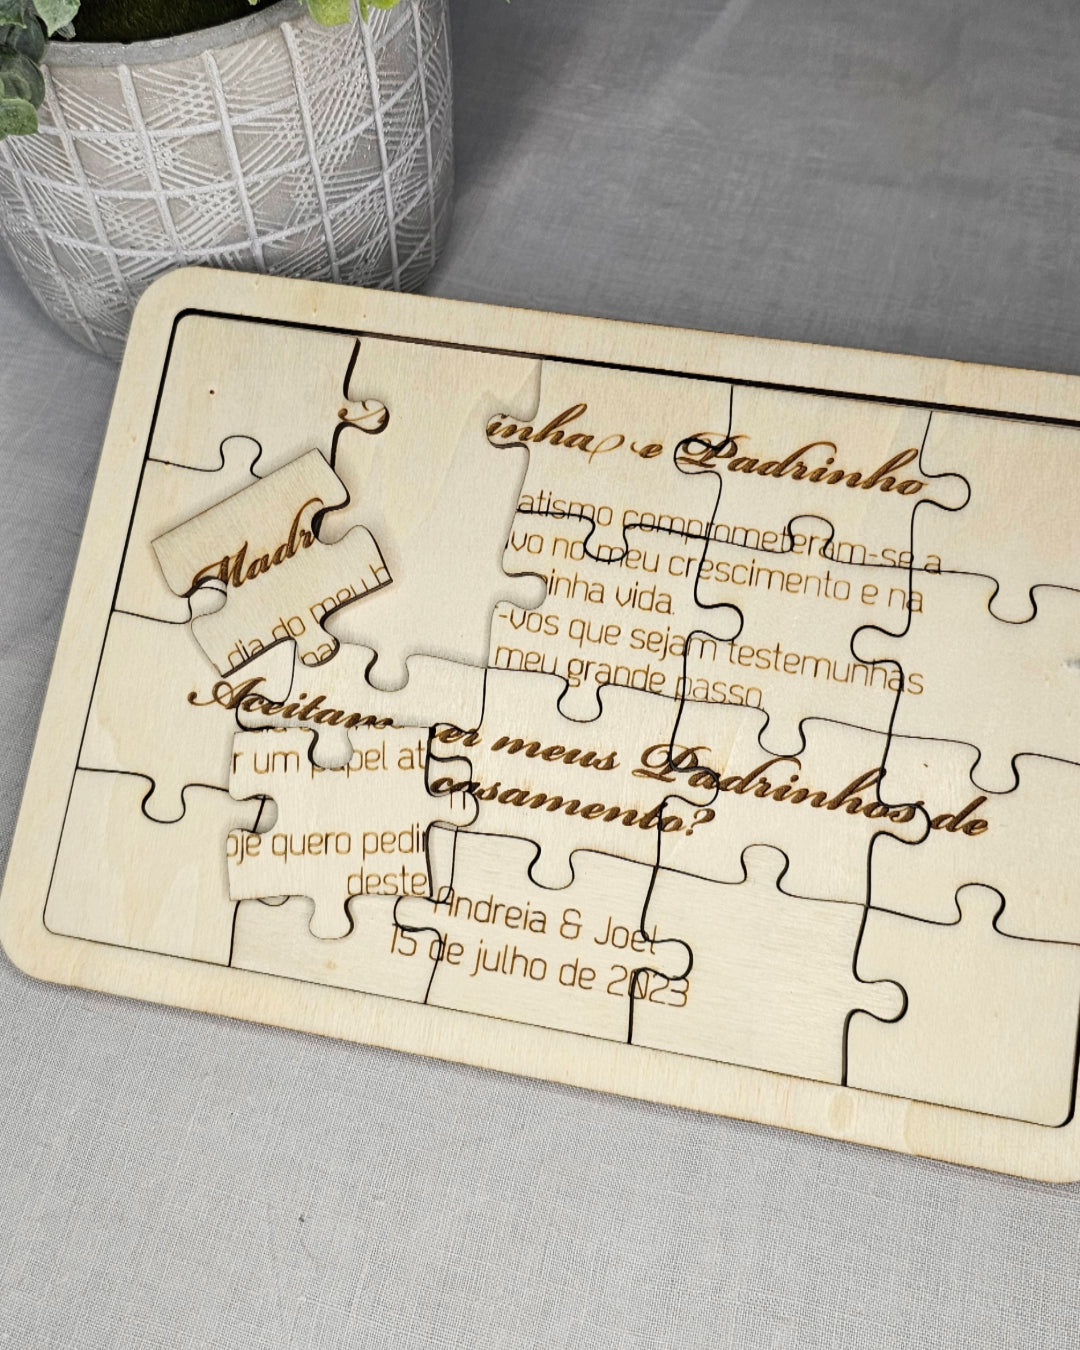 Madr
inha e Padrinho
dia do meu b
atismo comprometeram-se a
pa
vo no meu crescimento e na
inha vida.
-vos que sejam testemunhas
meu grande passo.
Aceitam
er meus Padrinhos de
casamento?
r um papel at
oje quero pedir
deste
Andreia & Joel
15 de julho de 2023